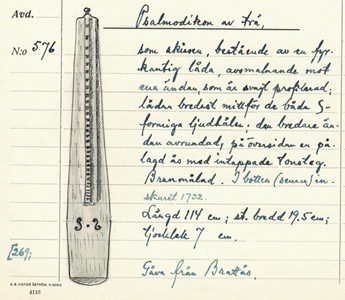 Avd.
Psalmodikon av trä,
N:o 576
som skissen, bestående av en fyr-
kantig låda, avsmalnande mot
ena ändan, som är svagt profilerad;
lådan bredast mittför de båda S-
formiga ljudhålen; den bredare än-
dan avrundad, på översidan en på-
lagd ås med intappade tonsteg.
Brunmålad. I botten (senare) in-
skuret 1732.
Längd 114 cm; st. bredd 19.5 cm;
tjocklek 7 cm.
[269;
Gåva från Brattås.
4118